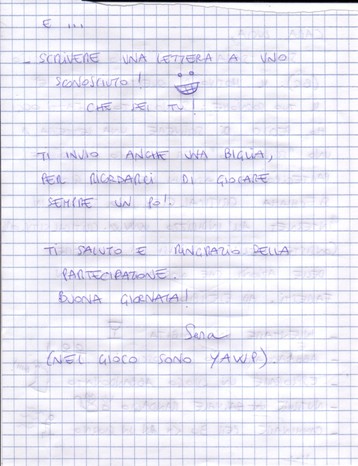 E ...
- SCRIVERE UNA LETTERA A UNO
SCONOSCIUTO!
CHE SEI TU!
TI INVIO ANCHE UNA BIGLIA,
PER RICORDARCI DI GIOCARE
SEMPRE UN PO'.
TI SALUTO E RINGRAZIO DELLA
PARTECIPAZIONE.
BUONA GIORNATA!
Sara
(NEL GIOCO SONO YAWP).